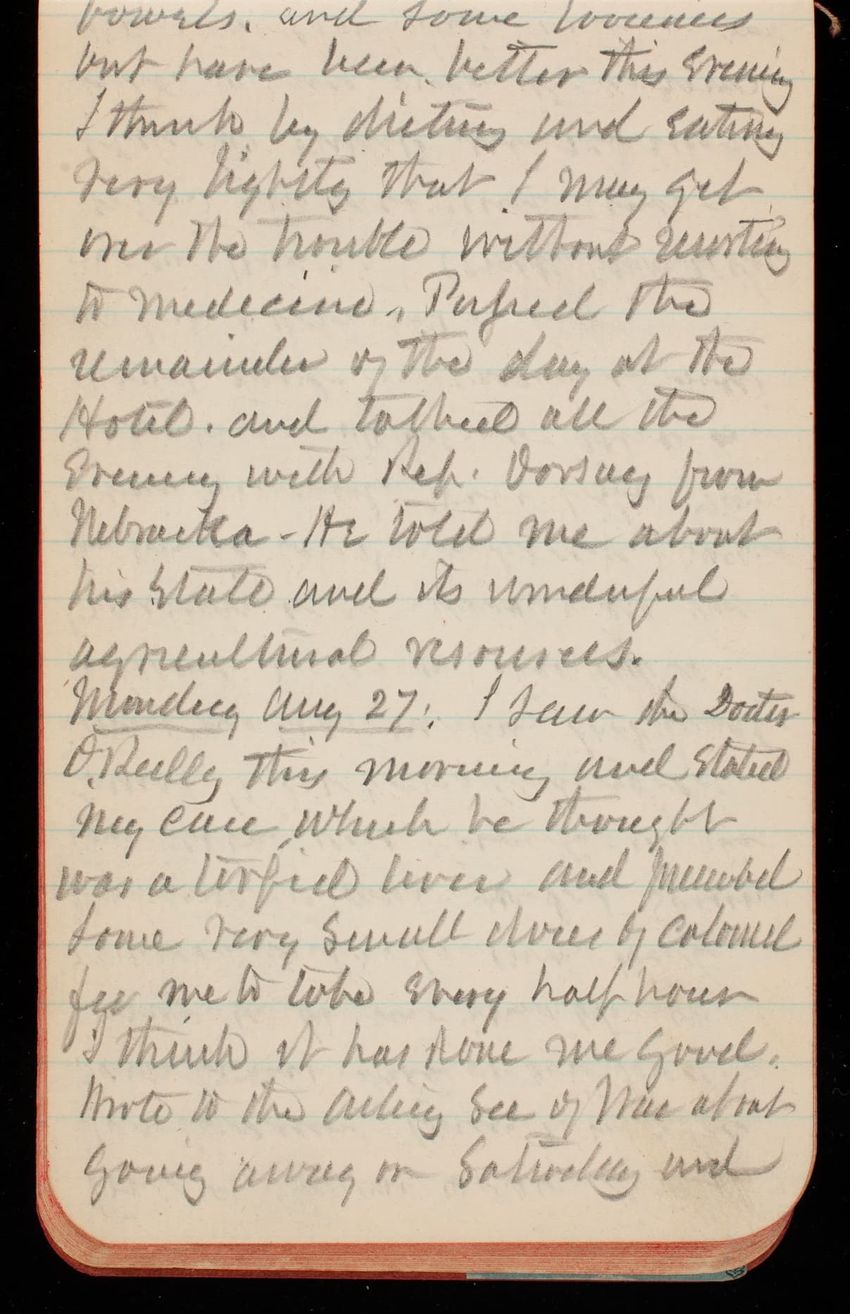 bowels. and some looseness
but have been better this Evening
I think by dieting and Eating
very lightly that I may get
over the trouble without resorting
to medecine. Passed the
remainder of the day at the
Hotel. and talked all the
Evening with Rep. Dorsey from
Nebraska - He told me about
his State and its wonderful
agricultural resources.
Monday Aug 27. I saw the Doctor
O'Reilly this morning and Stated
my case, which he thought
was a torpid liver and prescribed
some very small doses of Calomel
for me to take Every half hour
I think it has done me good.
Wrote to the Acting Sec of War about
going away on Saturday and